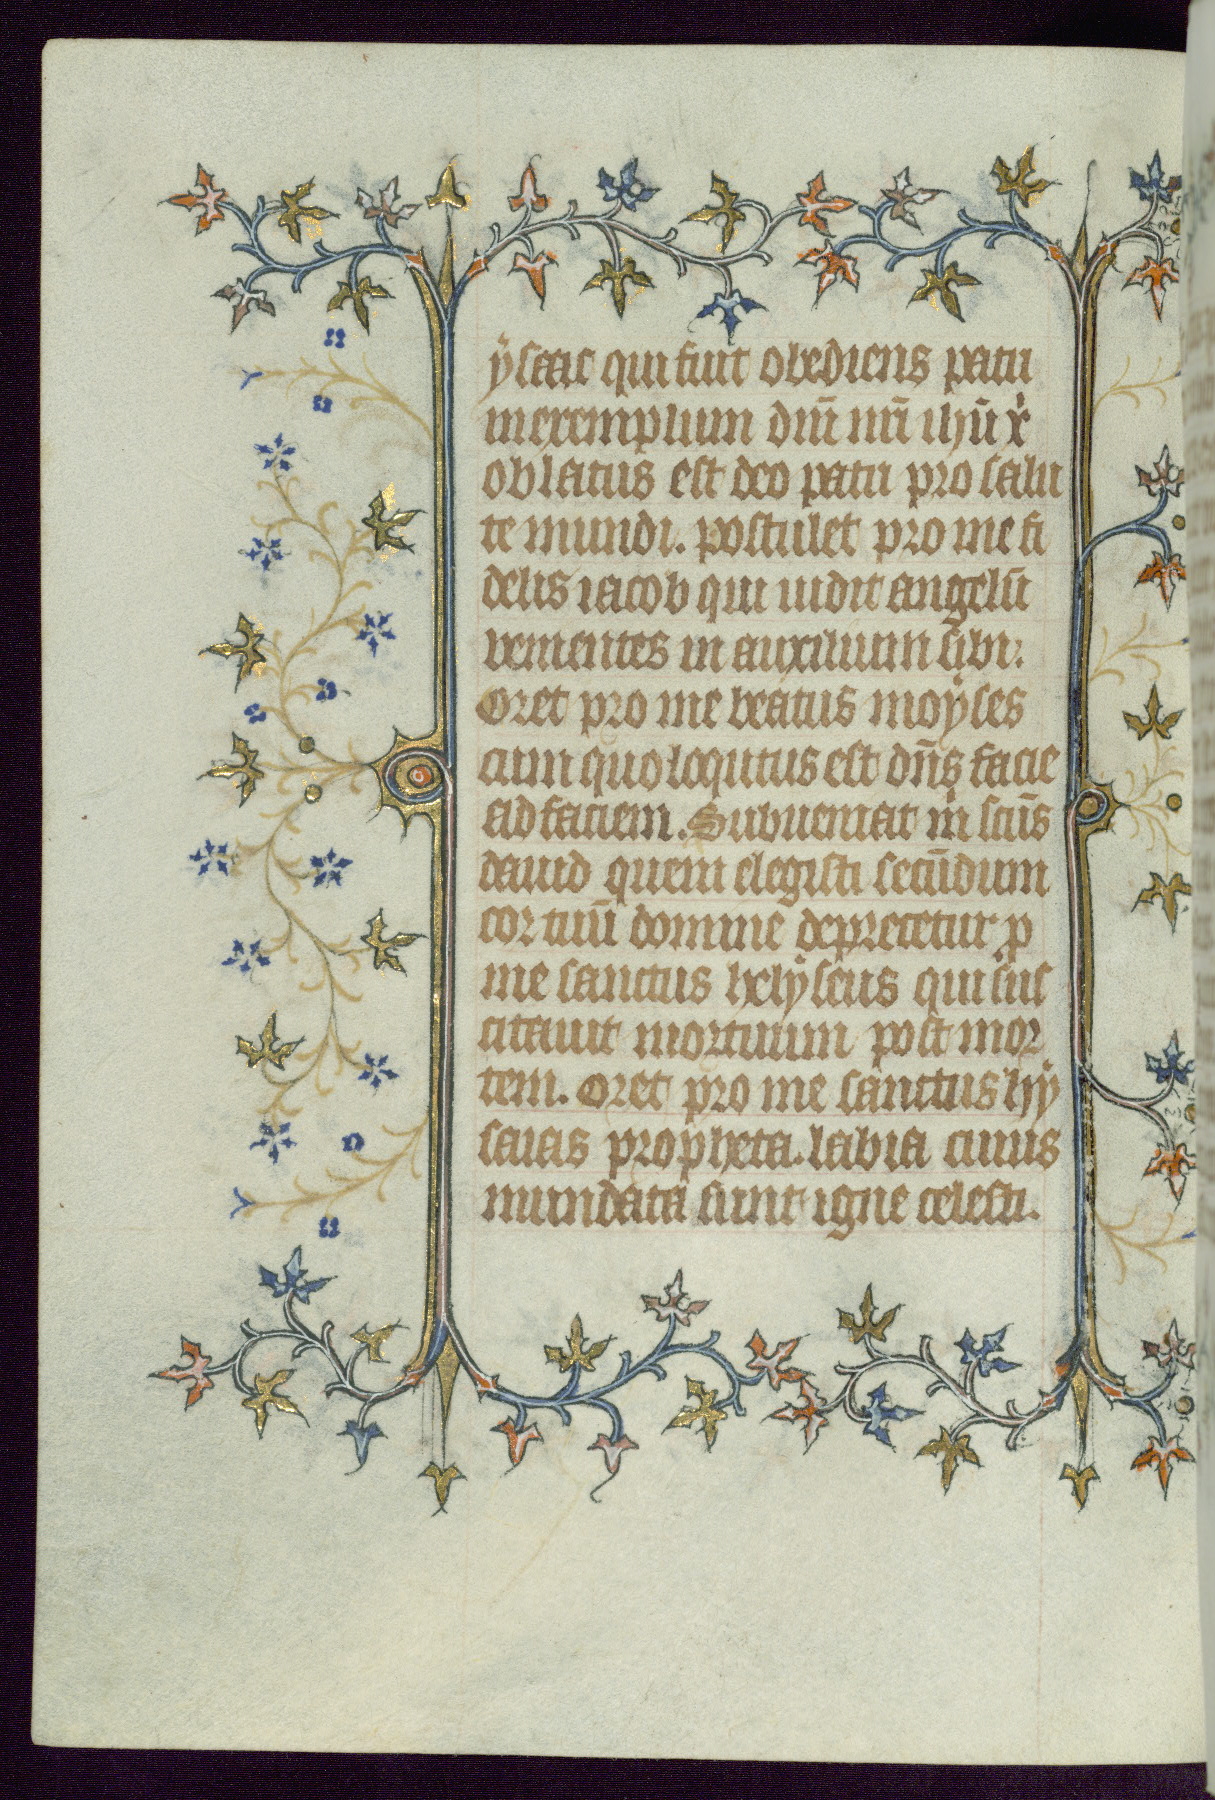 ẏsaac qui fuit obediens patri
in exemplum dn̄i nr̄i ih̄u x̄
oblatus est deo patri pro salu
te mundi. postulet pro me fi
delis iacob qui uidit angelū
venientes in auxilium sibi.
Oret pro me beatus moẏses
cum quo loqutus est dn̄s facie
ad faciem. Subueniat m̄ sc̄us
dauid quem elegisti secūdum
cor tuū domine deprecetur p
me sanctus helẏseus qui sus
citauit mortuum post mor
tem. Oret pro me sanctus hẏ
saias propheta. labia cuius
mundata sunt igne celesti.